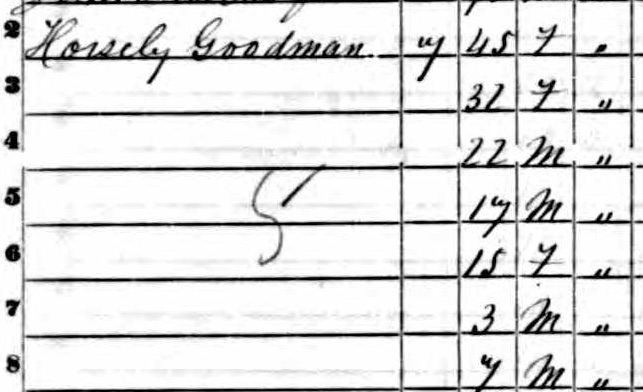 2 Horsely Goodman 7 45 F "
3 32 F "
4 22 M "
5 17 M "
6 15 F "
7 3 M "
8 7 M "
5